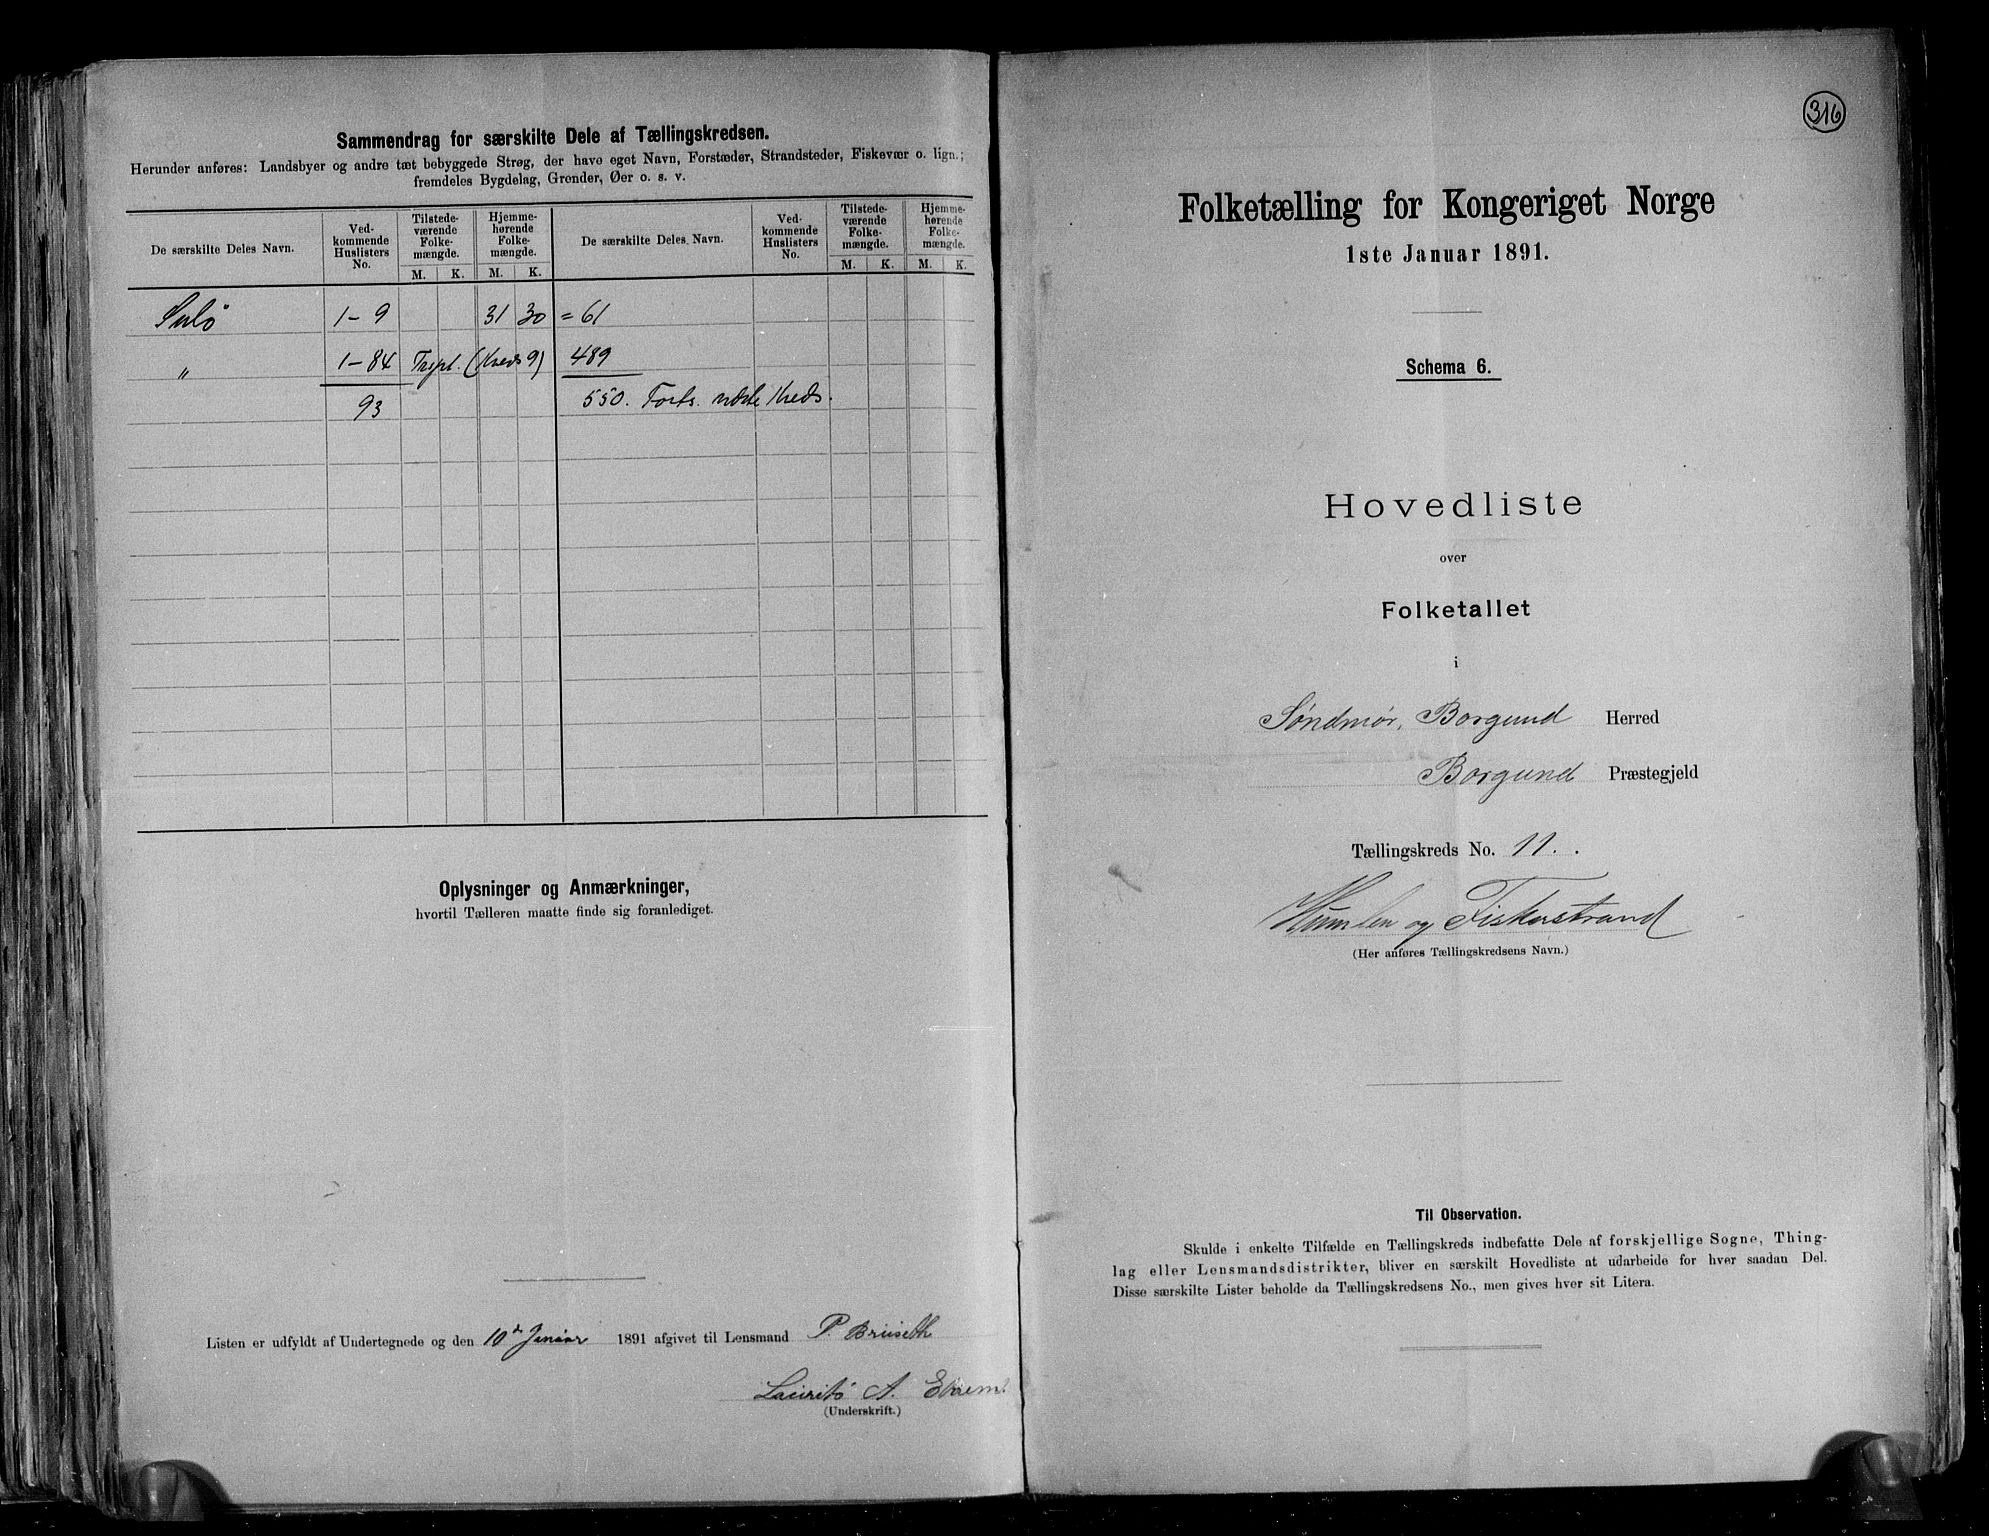 Sammendrag for særskilte Dele af Tællingskredsen.
Herunder anføres: Landsbyer og andre tæt bebyggede Strøg, der have eget Navn, Forstæder, Strandsteder, Fiskevær o. lign.;
fremdeles Bygdelag, Grender, Øer o. s. v.
De særskilte Deles Navn.
Ved-
kommende
Huslisters
No.
Tilstede-
værende
Folke-
mængde.
Hjemme-
hørende
Folke-
mængde.
De særskilte Deles Navn.
Ved-
kommende
Huslisters
No.
Tilstede-
værende
Folke-
mængde.
Hjemme-
hørende
Folke-
mængde.
M. K. M. K. M. K. M. K.
Sulø 1-9 31 30 = 61
„ 1-84 (Kreds 9) 489
93 550. Forts. næste Kreds.
Oplysninger og Anmærkninger,
hvortil Tælleren maatte finde sig foranlediget.
Listen er udfyldt af Undertegnede og den 10de Januar 1891 afgivet til Lensmand P. Bruseth
Laurits A.
(Underskrift.)
316
Folketælling for Kongeriget Norge
1ste Januar 1891.
Schema 6.
Hovedliste
over
Folketallet
i
Søndmør, Borgund Herred
Borgund Præstegjeld
Tællingskreds No. 11.
Humlen og Fiskerstrand
(Her anføres Tællingskredsens Navn.)
Til Observation.
Skulde i enkelte Tilfælde en Tællingskreds indbefatte Dele af forskjellige Sogne, Thing-
lag eller Lensmandsdistrikter, bliver en særskilt Hovedliste at udarbeide for hver saadan Del.
Disse særskilte Lister beholde da Tællingskredsens No., men gives hver sit Litera.